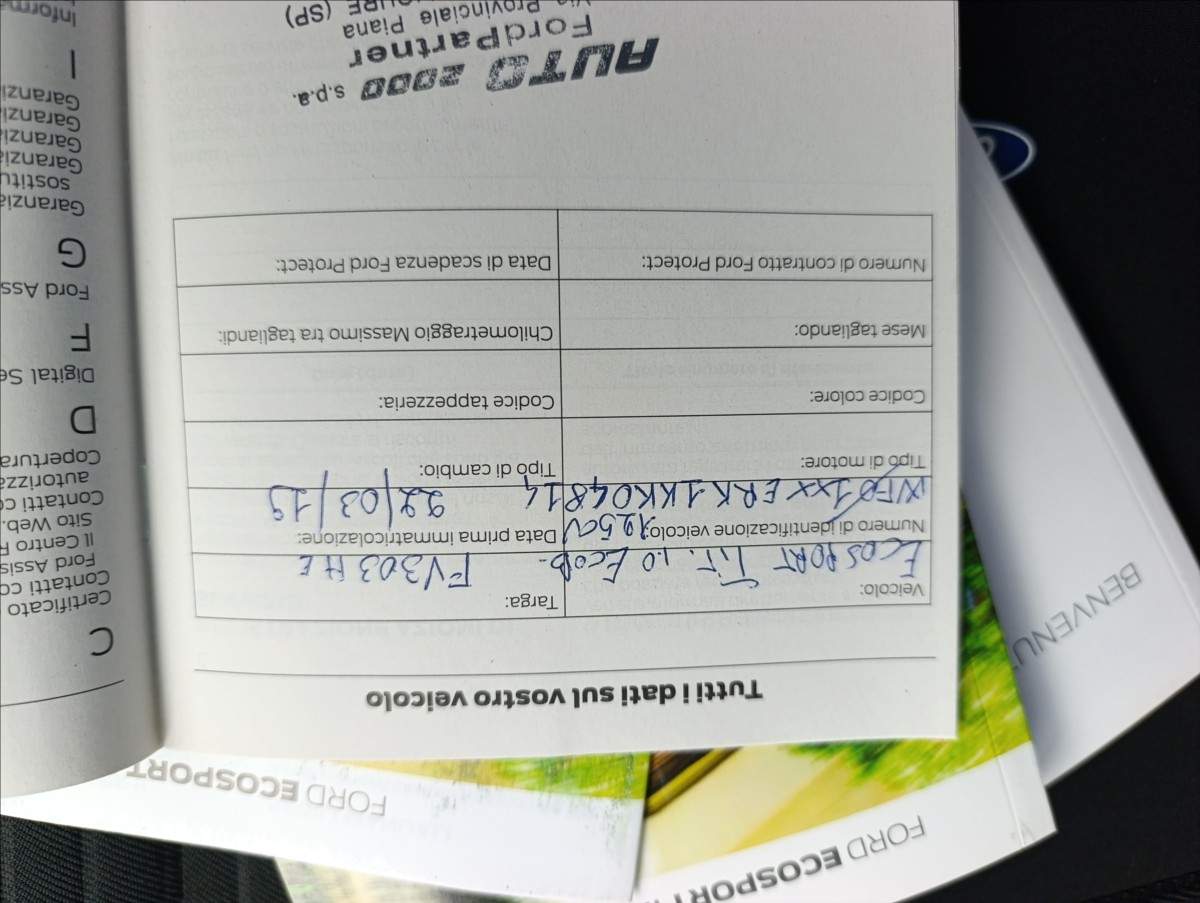 Tutti i dati sul vostro veicolo
Veicolo:
ECOSPORT TIT. 1.0 ECOB. 125CV
Targa:
FV303HE
Numero di identificazione veicolo:
WF01XXERK1KK04814
Data prima immatricolazione:
22/03/19
Tipo di motore:
Tipo di cambio:
Codice colore:
Codice tappezzeria:
Mese tagliando:
Chilometraggio Massimo tra tagliandi:
Numero di contratto Ford Protect:
Data di scadenza Ford Protect:
AUTO 2000 s.p.a.
FordPartner
Provinciale Piana
(SP)
C
Certificato
Contatti
Ford
Il Centro
Sito Web.
Contatti
autorizza
Copertura
D
Digital
F
Ford
G
Garanzia
sostitu
Garanzia
Garanzia
Garanzi
Garanzi
I
Inform
FORD ECOSPORT
FORD ECOSPORT
BENVENU